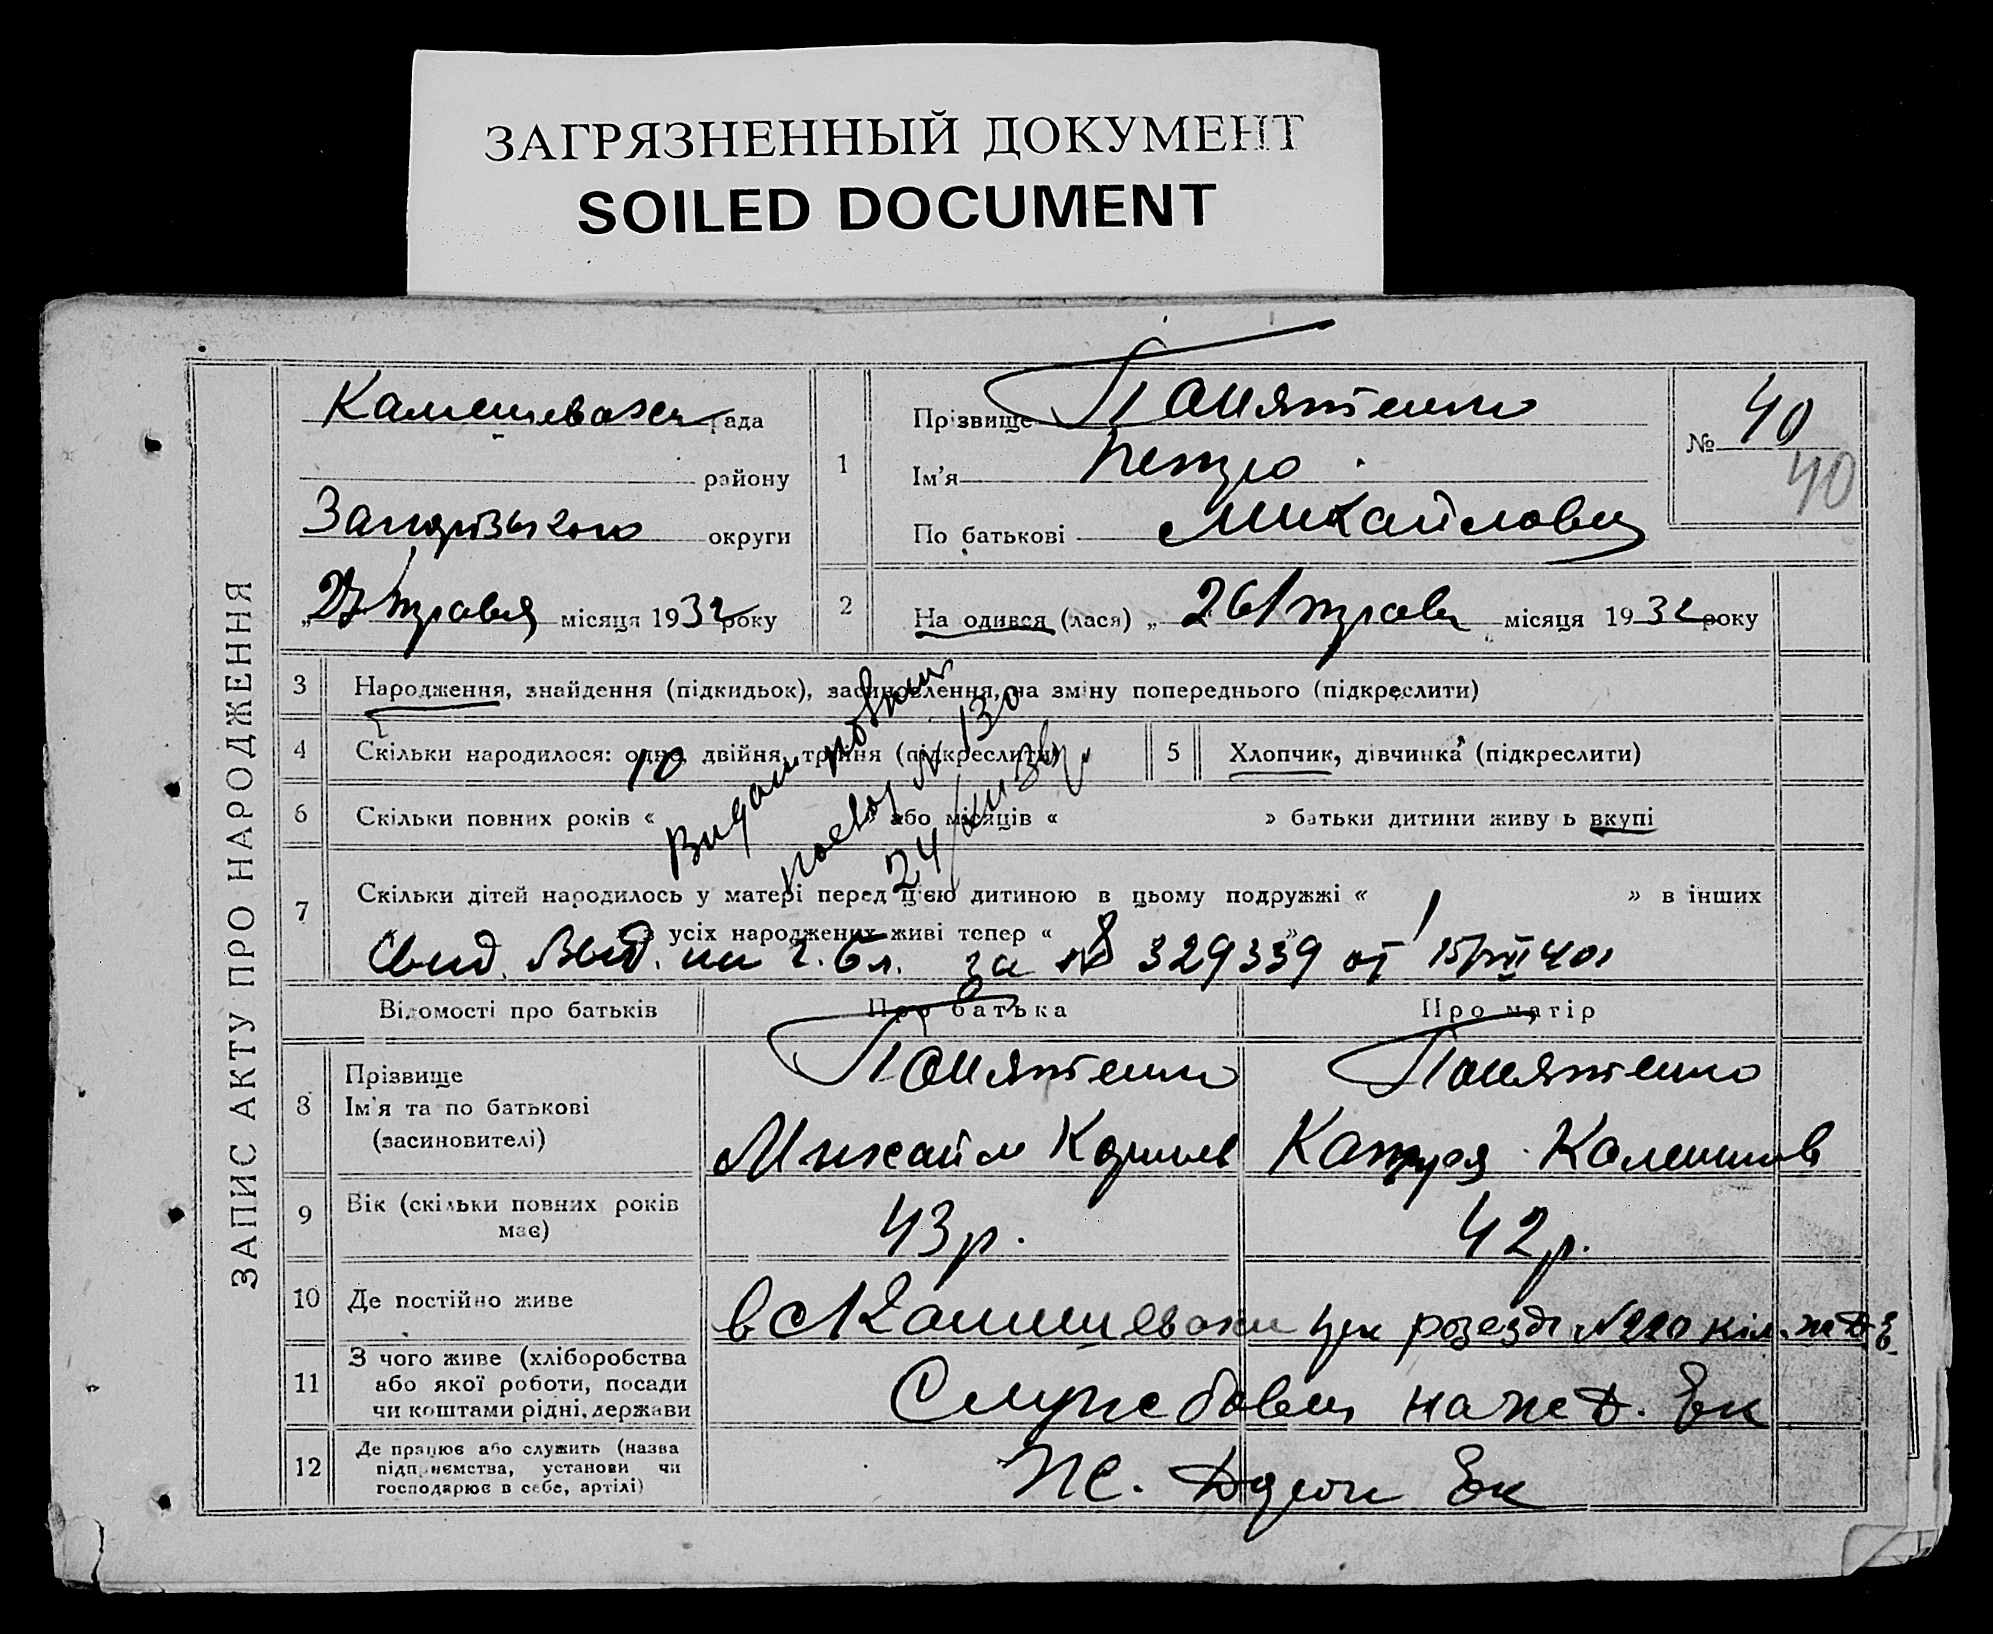 ЗАГРЯЗНЕННЫЙ ДОКУМЕНТ
SOILED DOCUMENT
ЗАПИС АКТУ ПРО НАРОДЖЕННЯ
рада
району
округи
27 травня місяця 1932 року
1
Прізвище Понятенко
Ім'я Петро
По батькові Михайлович
№ 40
40
2
На одився (лася) „ 26/травн місяця 1932 року
3
Народження, знайдення (підкидьок), засиновлення, на зміну попереднього (підкреслити)
4
Скільки народилося: одно, двійня, трійня (підкреслити)
5
Хлопчик, дівчинка (підкреслити)
6
Скільки повних років « 10 або місяців « » батьки дитини живуть вкупі
Видано повт
№ 130
24/
7
Скільки дітей народилось у матері перед цією дитиною в цьому подружжі « 1 » в інших
з усіх народжених живі тепер « »
Свид. Выд. за № 329339 от 15/VII 40
Відомості про батьків
Про батька
Про матір
8
Прізвище
Ім'я та по батькові
(засиновителі)
Понятенко
Михайло
Понятенко
Катря
9
Вік (скільки повних років має)
43 р.
42 р.
10
Де постійно живе
в с Камишеваси при розезді №220 кіл. ж Д
11
З чого живе (хліборобства
або якої роботи, посади
чи коштами рідні, держави
Службовец на ж Д. Ек
12
Де працює або служить (назва
підприємства, установи чи
господарює в себе, артілі)
Ж. Ек